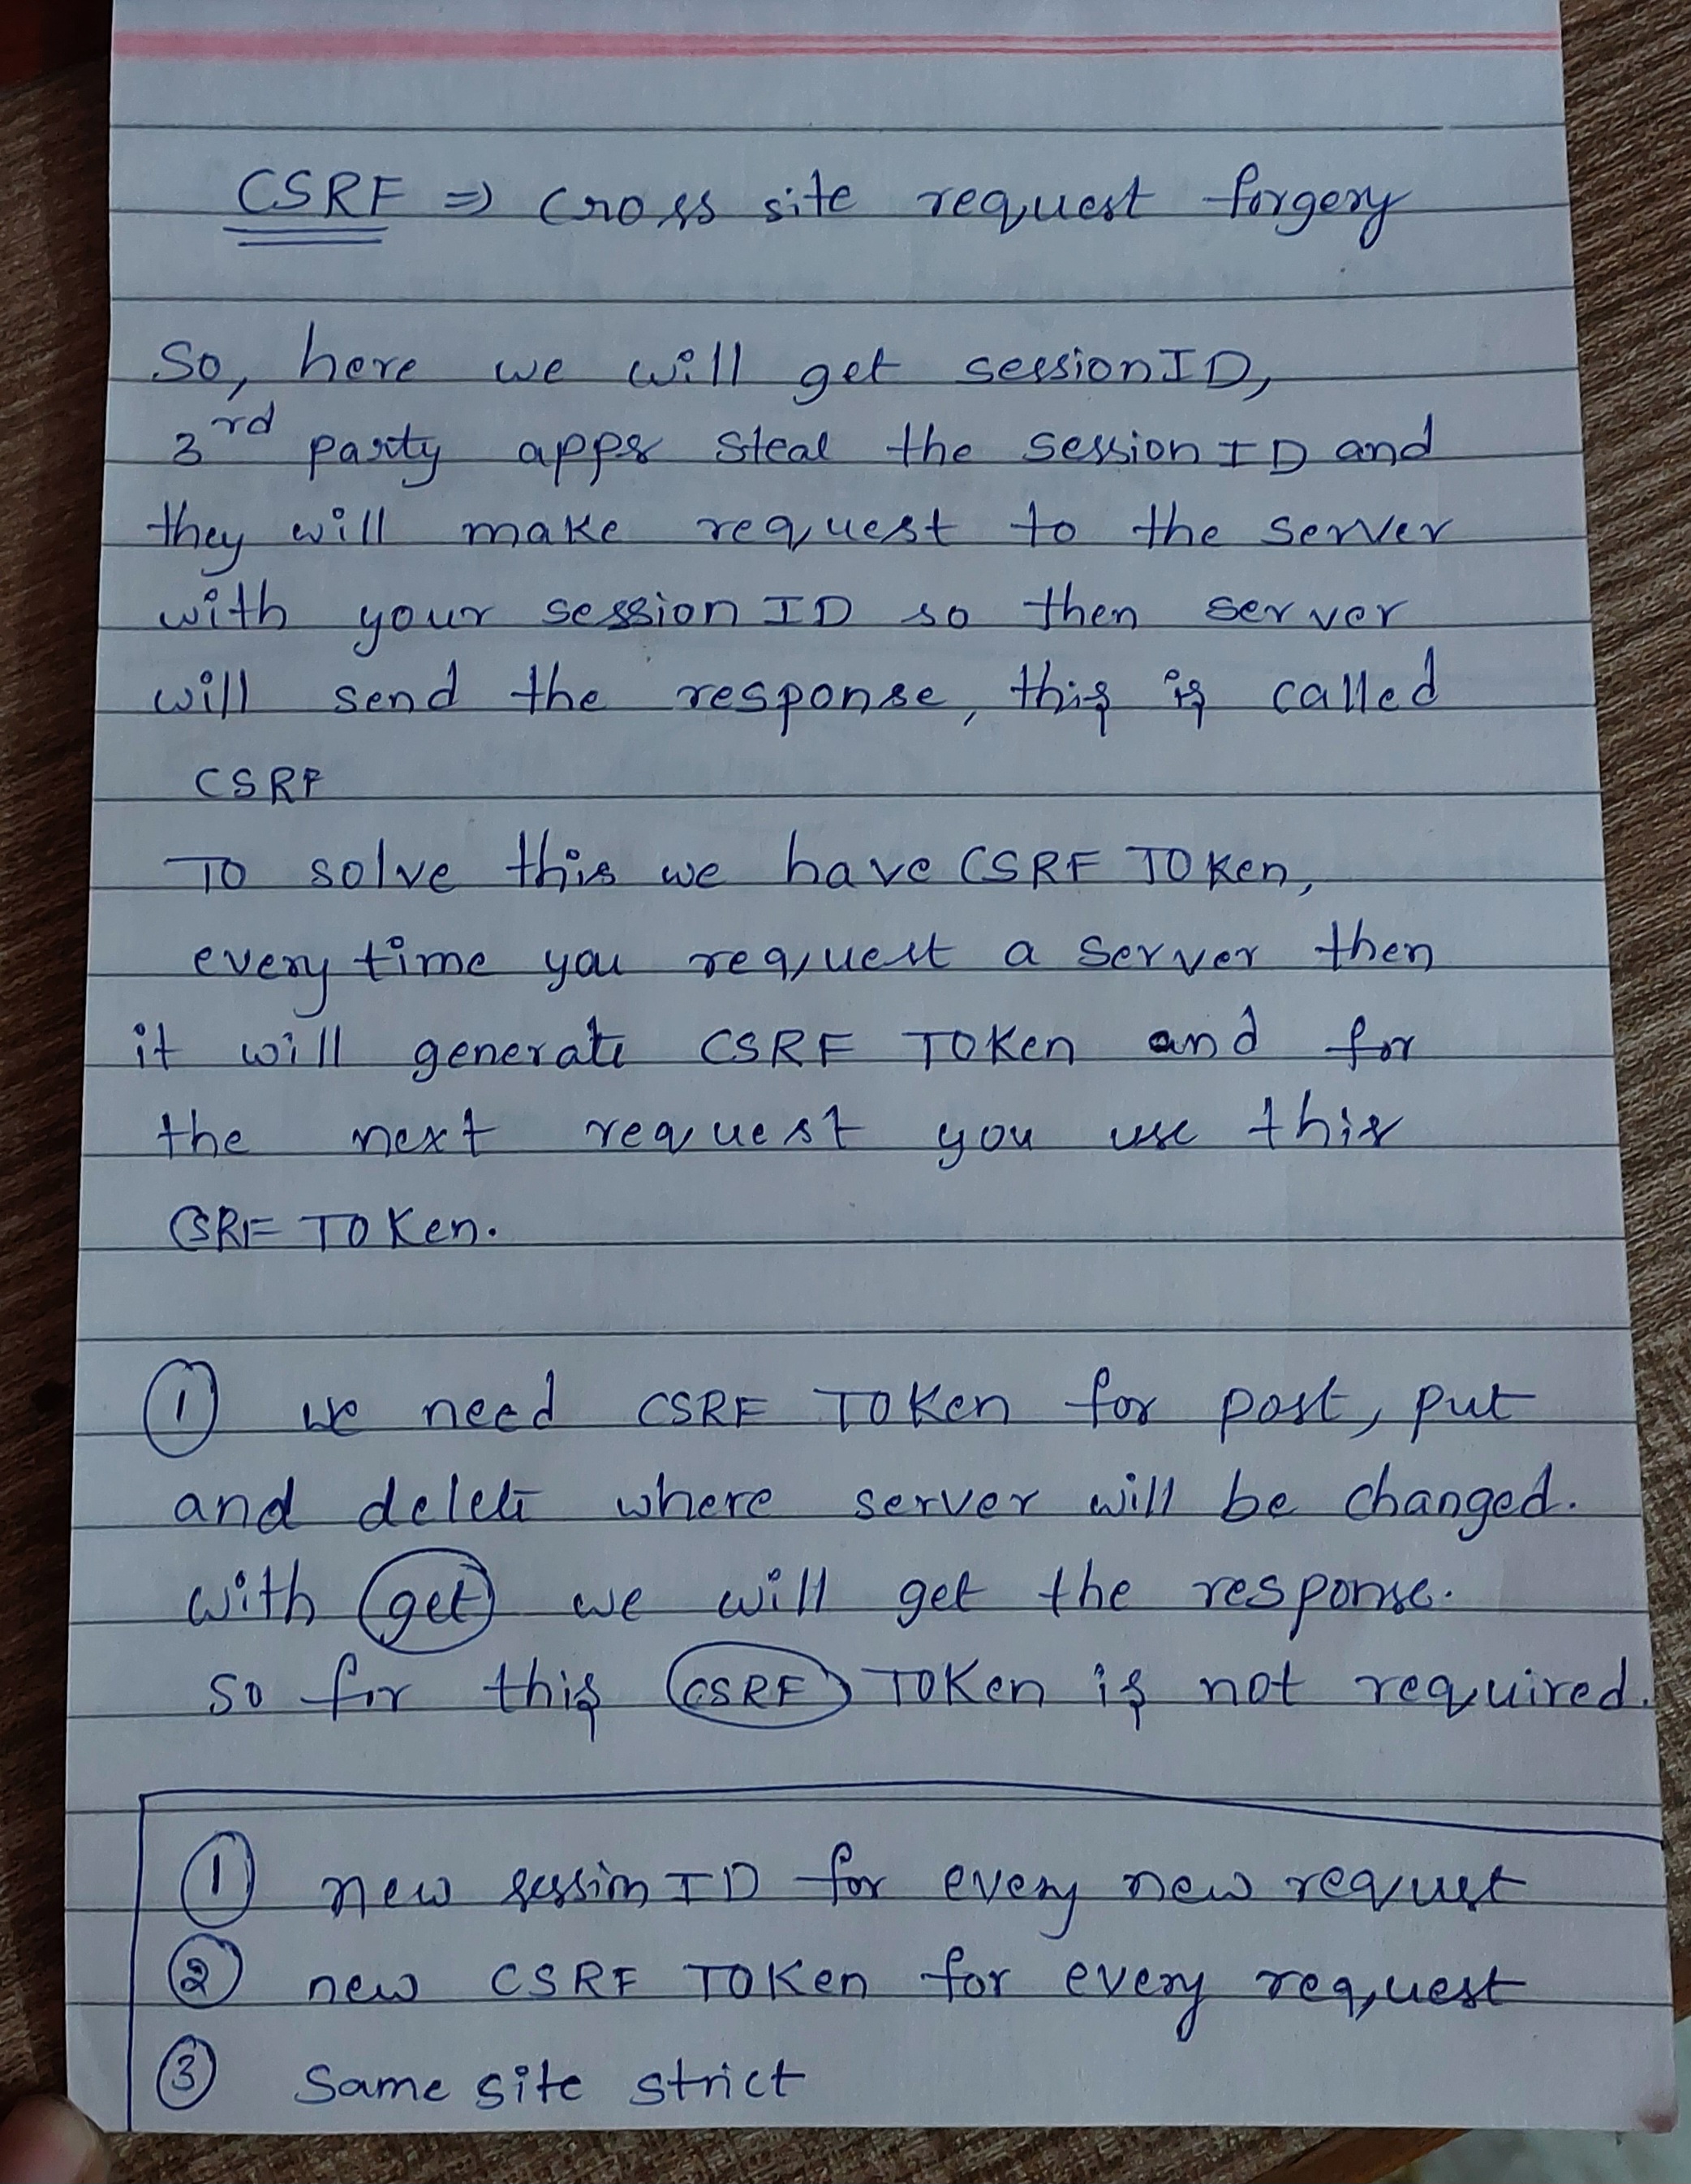 CSRF => Cross site request forgery
So, here we will get sessionID,
3rd party apps steal the session ID and
they will make request to the server
with your session ID so then server
will send the response, this is called
CSRF
To solve this we have CSRF Token,
every time you request a server then
it will generate CSRF Token and for
the next request you use this
CSRF Token.
① we need CSRF Token for post, put
and delete where server will be changed.
with get we will get the response.
so for this CSRF Token is not required.
① new session ID for every new request
② new CSRF Token for every request
③ Same site strict